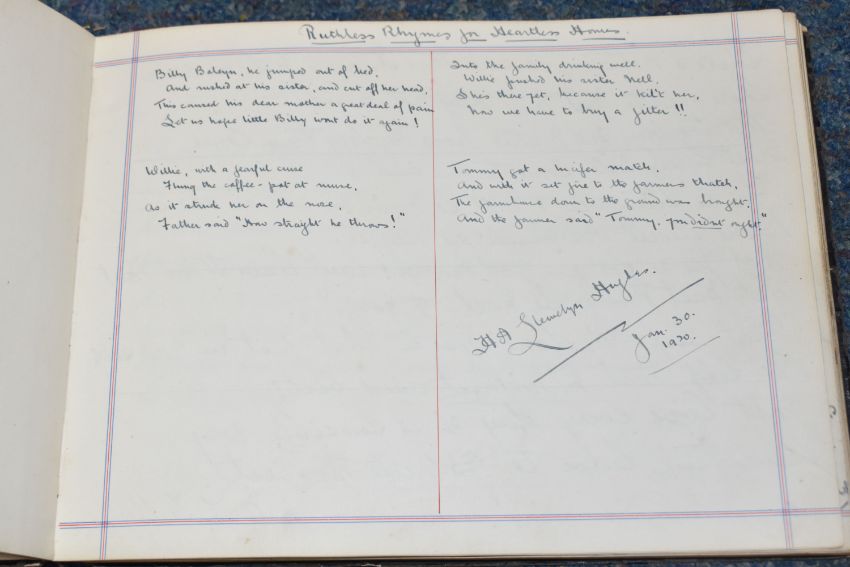 Ruthless Rhymes for Heartless Homes.
Billy Belsyn, he jumped out of bed,
And rushed at his sister, and cut off her head,
This caused his dear mother a great deal of pain
Let us hope little Billy wont do it again!
Willie, with a fearful curse
Flung the coffee-pot at nurse,
As it struck her on the nose,
Father said "How straight he throws!"
Into the family drinking well.
Willie pushed his sister Nell.
She's there yet, because it kil't her,
Now we have to buy a filter!!
Tommy got a lucifer match,
And with it set fire to the farmers thatch,
The farmhouse down to the ground was brought,
And the farmer said "Tommy, you didnt ought."
H A Llewelyn Hughes.
Jan. 30.
1920.